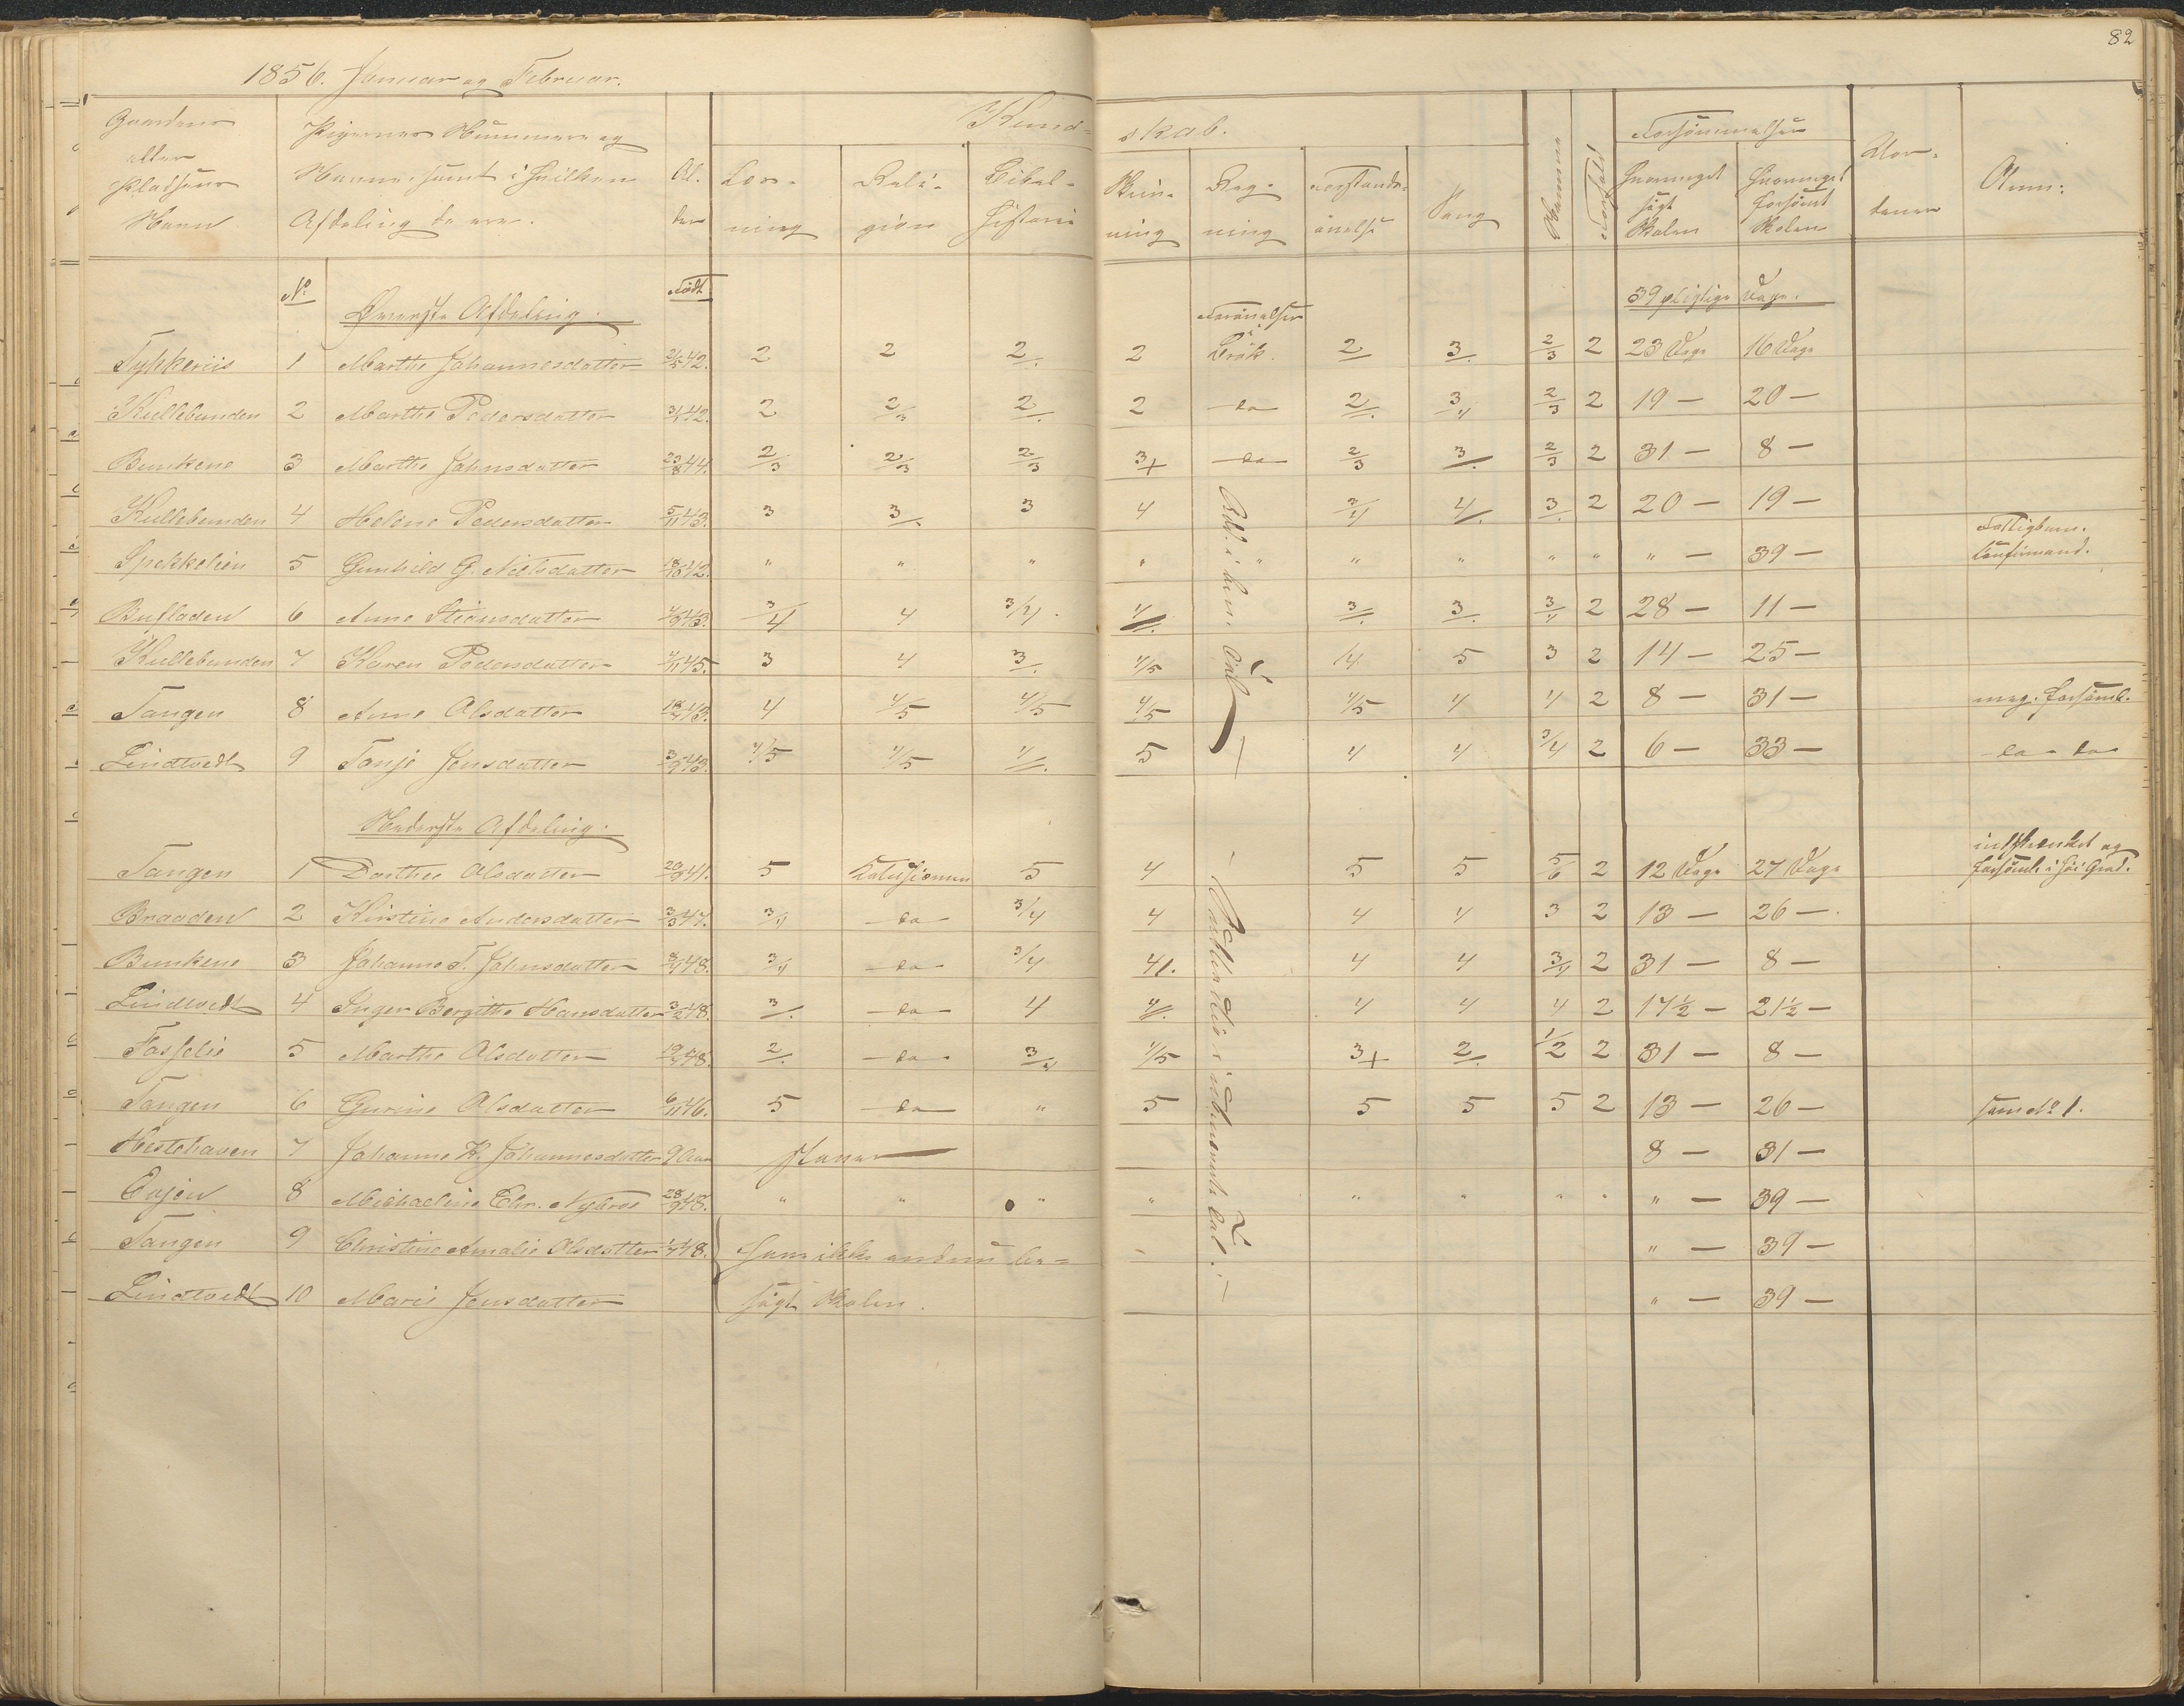 82
1856. Januar og Februar.
Gaardens eller Pladsens Navn
Pigernes Nummere og Navne, samt i hvilken Afdeling de ere.
Al-der
Kund-skab.
Læs-ning
Reli-gion
Bibel-historie
Skriv-ning
Reg-ning
Forstands-øvelse
Sang
Nemme
Forhold
Forsømmelser
hvormeget søgt Skolen
hvormeget forsømt Skolen
Anm:
No Øverste Afdeling. Født 39 pligtige Dage.
Tykkeriis 1 Marthe Johannesdatter 42. 2 2 2 2 Forøvelser i Brøk. 2 3 2/3 2 23 Dage 16 Dage
Kullebunden 2 Marthe Pedersdatter 42. 2 2/3 2 2 do 2 3/4 2/3 2 19 — 20 —
Bunkene 3 Marthe Johnsdatter 23/8 44. 2/3 2/3 2/3 3+ do 2/3 3 2/3 2 31 — 8 —
Kullebunden 4 Helene Pedersdatter 5/11 43. 3 3 3 4 3/4 4 3 2 20 — 19 —
Spekkelien 5 Gunhild G. Nielsdatter 18/10 42. " " " " " " " " " " — 39 — Fattigbarn. Confirmand.
Bufladen 6 Anne Stiansdatter 43. 3/4 4 3/4 4 3 3 3/4 2 28 — 11 —
Kullebunden 7 Karen Pedersdatter 45. 3 4 3 4/5 4 5 3 2 14 — 25 —
Tangen 8 Anne Olsdatter 43. 4 4/5 4/5 4/5 4/5 4 4 2 8 — 31 — meg. forsømt.
Lindtvedt 9 Tonje Jensdatter 3/9 43. 4/5 4/5 4 5 4 4 3/4 2 6 — 33 — do do
Nederste Afdeling.
Tangen 1 Dorthee Olsdatter 29/9 41. 5 Katechismen 5 4 5 5 5/6 2 12 Dage 27 Dage indskrænket og forsømt i høi Grad.
Braaden 2 Kirstine Andersdatter 47. 3/4 do 3/4 4 4 4 3 2 13 — 26 —
Bunkene 3 Johanne T. Johnsdatter 48. 3/4 do 3/4 4 4 4 3/4 2 31 — 8 —
Lindtvedt 4 Inger Bergithe Hansdatter 3/2 48. 3 do 4 4 4 4 4 2 17½ — 21½ —
Fosselie 5 Marthe Olsdatter 48. 2 do 3/4 4/5 3+ 2 1/2 2 31 — 8 —
Tangen 6 Gurine Olsdatter 6/11 46. 5 do " 5 5 5 5 2 13 — 26 — som No 1.
Hestehaven 7 Johanne K. Johannesdatter 9 Aar 8 — 31 —
8 Michaeline Chr. Nybroe 28/9 48. " " " " " " " " " — 39 —
Tangen 9 Christine Amalie Olsdatter 48. som ikke endnu be- " — 39 —
Lindtvedt 10 Marie Jensdatter søgt Skolen. " — 39 —